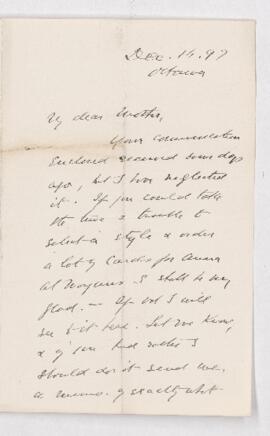 Dec. 14. 97
Ottawa
My dear Mother,
Your communication
enclosed received some days
ago, but I have neglected
it. If you could take
the time & trouble to
select a style & order
a lot of cards for Anna
at I shall be very
glad. — If not I will
see to it here. Let me know,
& if you had rather I
should do it send me
a memo. of exactly what